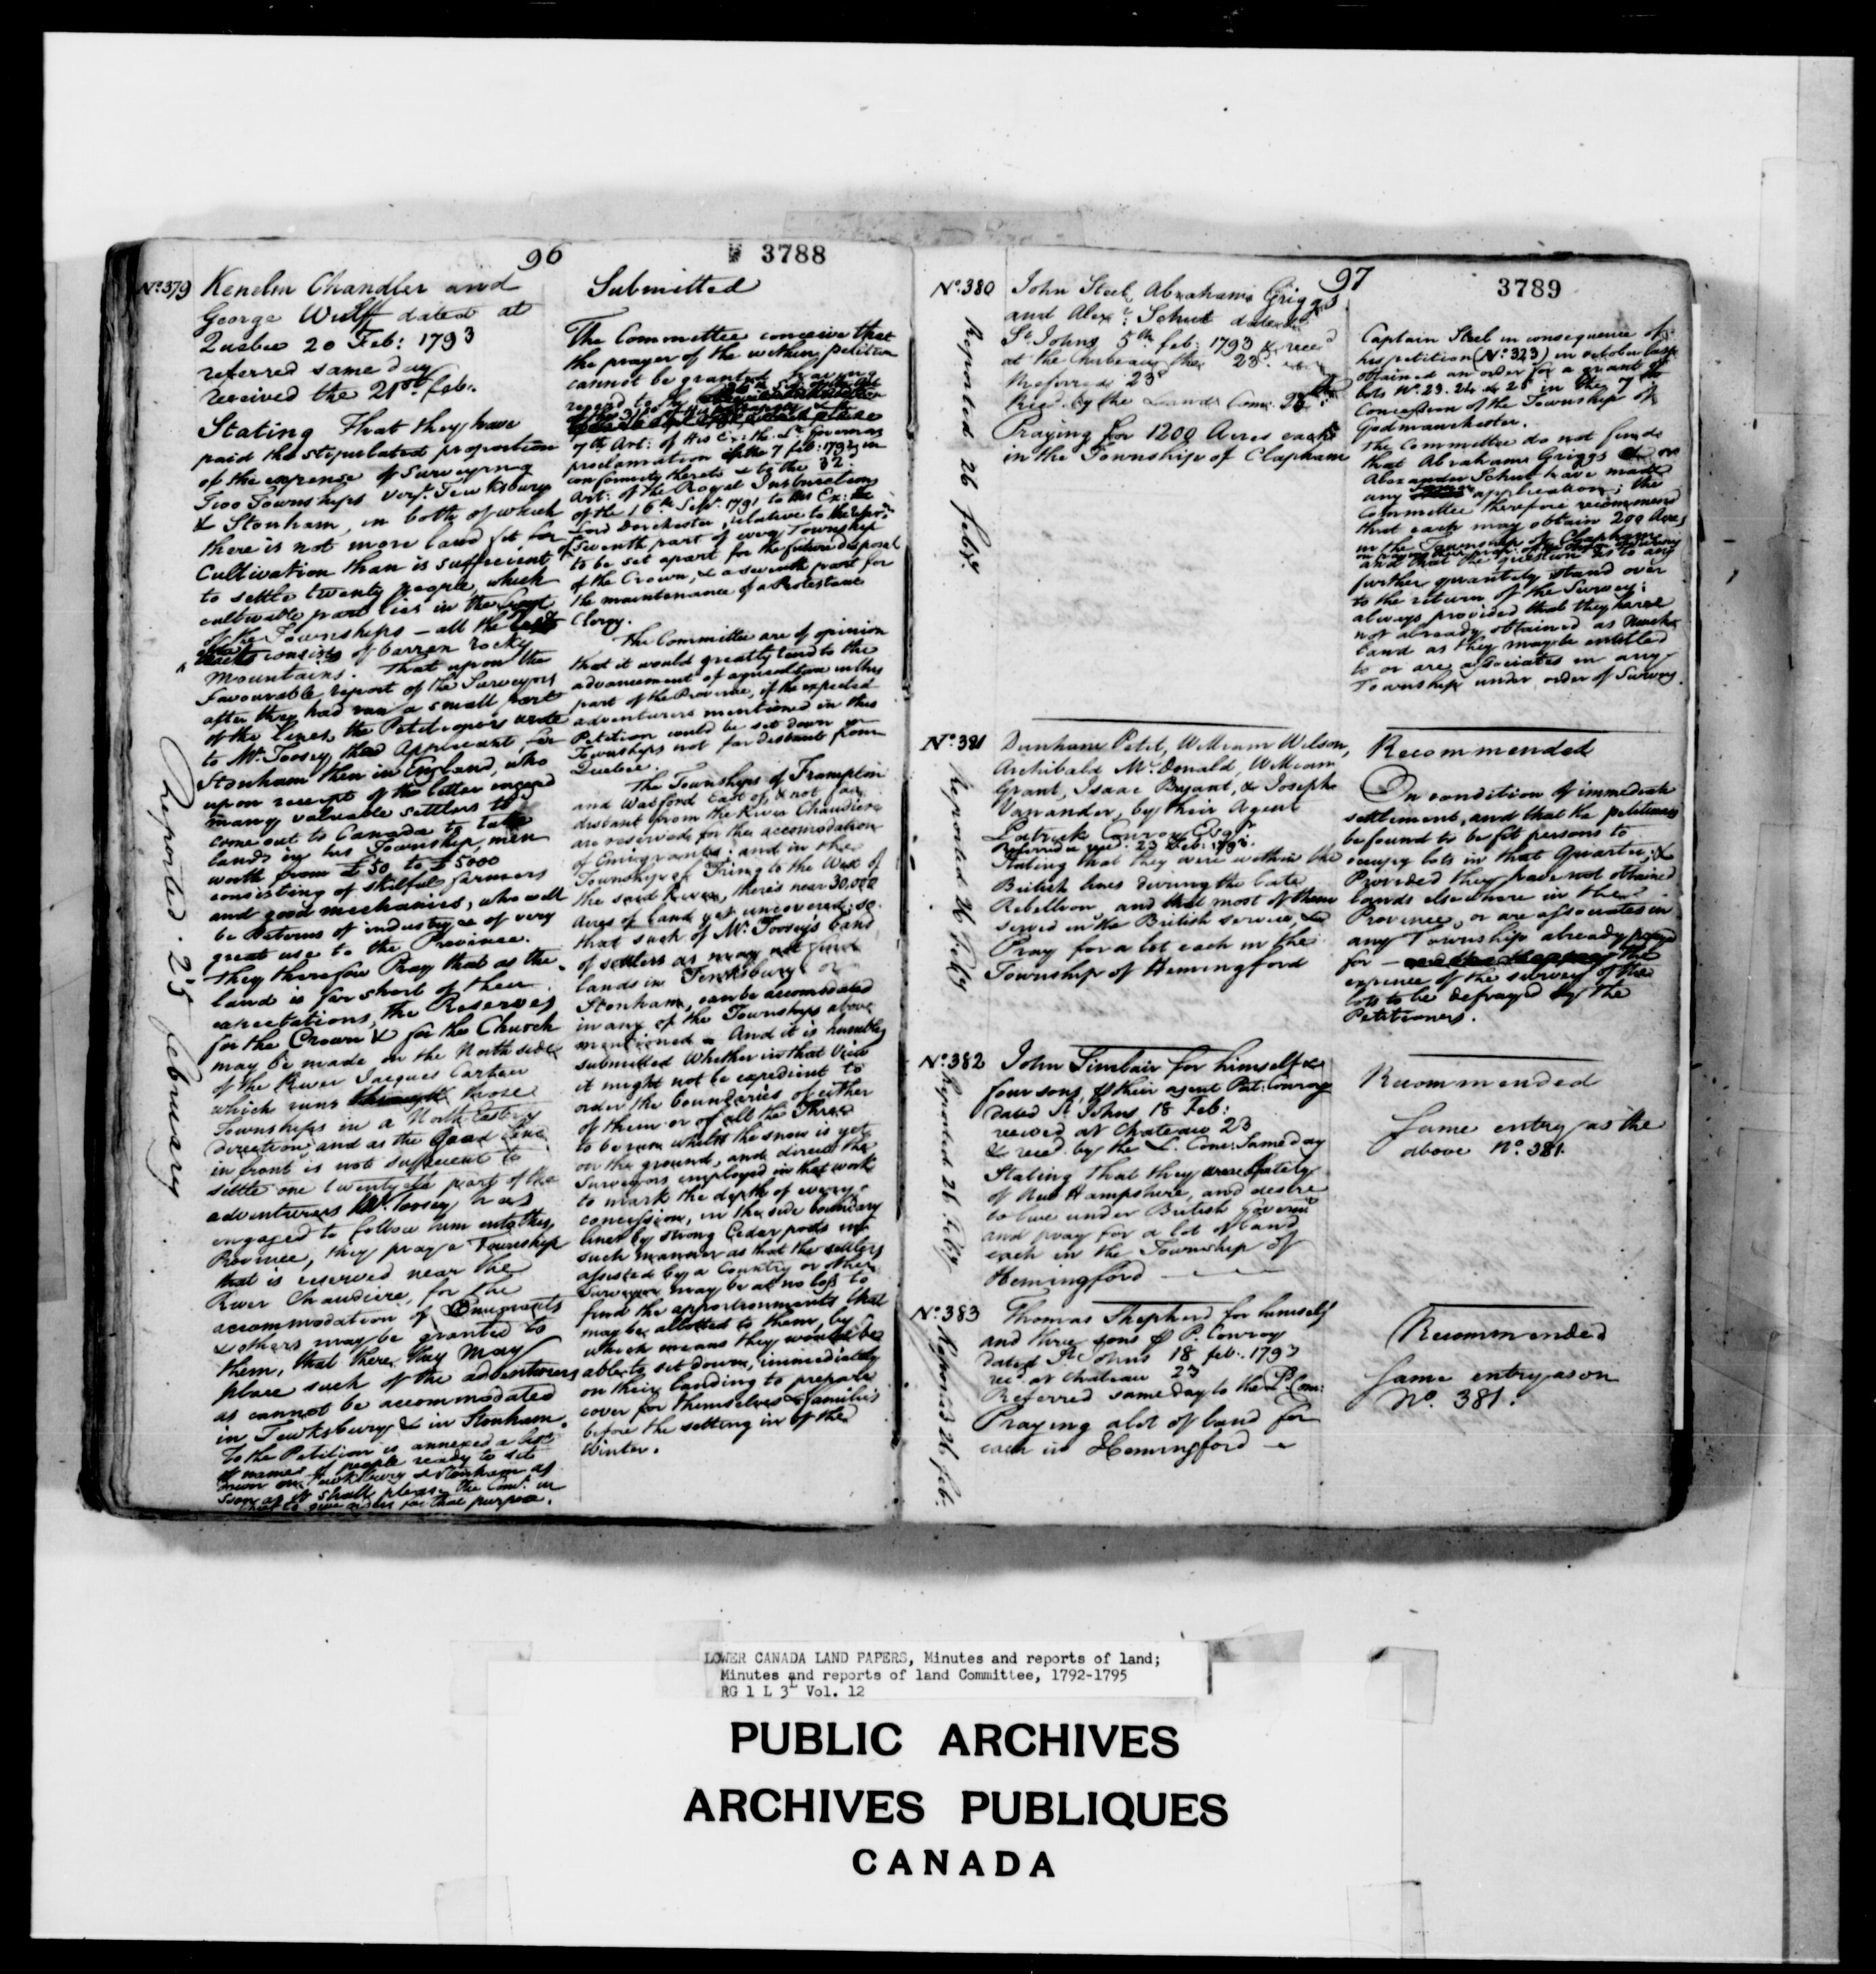 96
3788
No. 379
Kenelm Chandler and
George Wulff dated at
Quebec 20 Feb: 1793
referred same day
received the 21st Feb:
Stating That they have
paid the stipulated proportion
of the expense of Surveying
Two Townships vizt. Tewksbury
& Stonham, in both of which
there is not more land fit for
Cultivation than is sufficient
to settle twenty people, which
cultivable part lies in the front
of the Townships — all the
tracts consists of barren rocky
mountains. That upon the
Favourable report of the Surveyors
after they had run a small part
of the lines, the Petitioners wrote
to Mr. Toosey the Applicant, for
Stonham then in England, who
upon receipt of the letter engaged
many valuable settlers to
come out to Canada to take
lands in his Township, men
worth from £50 to £5000
consisting of skilful farmers
and good mechanics, who will
be Patterns of industry & of very
great use to the Province.
They therefore Pray that as the
land is far short of their
expectations, the Reserves
for the Crown & for the Church
may be made on the North side
of the River Jacques Cartier
which runs through those
Townships in a North Easterly
direction, and as the Good Land
in front is not sufficient to
settle one twentyeth part of the
adventurers Mr. Toosey has
engaged to follow him into this
Province, they pray a Township
that is reserved near the
River Chaudiere, for the
accommodation of Emigrants
& others may be granted to
them, that there they May
place such of the adventurers
as cannot be accommodated
in Tewksbury & in Stonham.
To the Petition is annexed a list
of names of people ready to sit
down on Tewksbury & Stonham as
soon as it shall please the Coml. in
to give orders for that purpose.
Reported. 25 february
Submitted
The Committee conceive that
the prayer of the within petition
cannot be granted having
regard to the
7th Art: of His Ex: the Lt. Governors
proclamation of the 7 feb: 1792, in
conformity thereto & to the 32.
Art: of the Royal Instructions
of the 16th Sept. 1791 to His Ex: the
Lord Dorchester, relative to the
of Seventh part of every Township
to be set apart for the future disposal
of the Crown, & a seventh part for
the maintenance of a Protestant
Clergy.
The Committee are of opinion
that it would greatly tend to the
advancement of agriculture in this
part of the Province, if the expected
adventurers mentioned in this
Petition could be set down in
Townships not far distant from
Quebec.
The Townships of Frampton
and Watford East of, & not far
distant from the River Chaudiere
are reserved for the accomodation
of Emigrants; and in the
Township of Tring to the West of
the said River, there's near 30,000
Acres of land yet uncovered; so
that such of Mr. Toosey's band
of settlers as may not find
lands in Tewksbury or
Stonham, can be accommodated
in any of the Townships above
mentioned — And it is humbly
submitted Whether in that View
it might not be expedient to
order the boundaries of either
of them or of all the Three
to be run whilst the snow is yet
on the ground, and direct the
Surveyors employed in that work
to mark the depth of every
concession, in the side boundary
lines by strong Cedar posts in
such manner as that the settlers
assisted by a Country or other
Surveyor may be at no loss to
find the apportionments that
may be allotted to them, by
which means they would be
able to set down, immediately
on their landing to prepare
cover for themselves & families
before the setting in of the
Winter.
97
3789
No. 380
John Steel, Abraham Griggs
and Alexr. Schut dated
St. Johns 5th feb: 1793 & recd
at the Chateau the 23.
Referred 23d
Recd. by the Land Com: 25th
Praying for 1200 Acres each
in the Township of Clapham
Reported 26 feb'y.
Captain Steel in consequence of
his petition (No. 323) in october last
obtained an order for a grant of
lots No. 23. 24 & 25 in the 7th
Concession of the Township of
Godmanchester.
The Committee do not find
that Abraham Griggs or
Alexander Schut have made
any former application; the
Committee therefore recommend
that each may obtain 200 Acres
in the Township of Clapham
and that the question as to any
further quantity stand over
to the return of the Survey;
always provided that they have
not already obtained as much
land as they may be entitled
to or are associates in any
Township under order of Survey.
No. 381
Dunham Petit, William Wilson,
Archibald McDonald, William
Grant, Isaac Bryant, & Joseph
Vanander, by their Agent
Patrick Conroy Esqr.
Referred & recd. 23 Feb: 1793.
Stating that they were within the
British lines during the late
Rebellion, and that most of them
served in the British service, &
Pray for a lot each in the
Township of Hemingford
Reported 26 Feb'y
Recommended
On condition of immediate
settlement, and that the petitioners
be found to be fit persons to
occupy lots in that Quarter; &
Provided they have not obtained
lands elsewhere in the
Province, or are associates in
any Township already prayed
for — the
expence of the survey of the
lots to be defrayed by the
Petitioners.
No. 382
John Sinclair for himself &
four sons, & their agent Pat: Conroy
dated St. Johns 18 Feb:
received at Chateau 23
& recd. by the L. Com: Same day
Stating That they were lately
of New Hampshire, and desire
to live under British Governt
and pray for a lot of land
each in the Township of
Hemingford
Reported 26 Feb'y.
Recommended
Same entry as the
above No. 381.
No. 383
Thomas Shepherd for himself
and three sons & P. Conroy
dated St. Johns 18 feb: 1793
rec. at Chateau 23
Referred same day to the Ld. Com:
Praying a lot of land for
each in Hemingford
Reported 26 feb:
Recommended
Same entry as on
No. 381.
LOWER CANADA LAND PAPERS, Minutes and reports of land;
Minutes and reports of land Committee, 1792-1795
RG 1 L 3L Vol. 12
PUBLIC ARCHIVES
ARCHIVES PUBLIQUES
CANADA